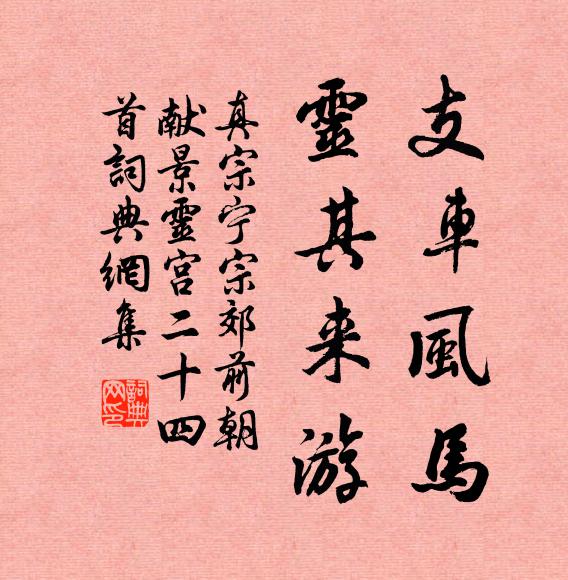 支車風馬
靈其来游
真宗宁宗郊前朝
献景靈宫二十四
首詞典網集
詞典
网印